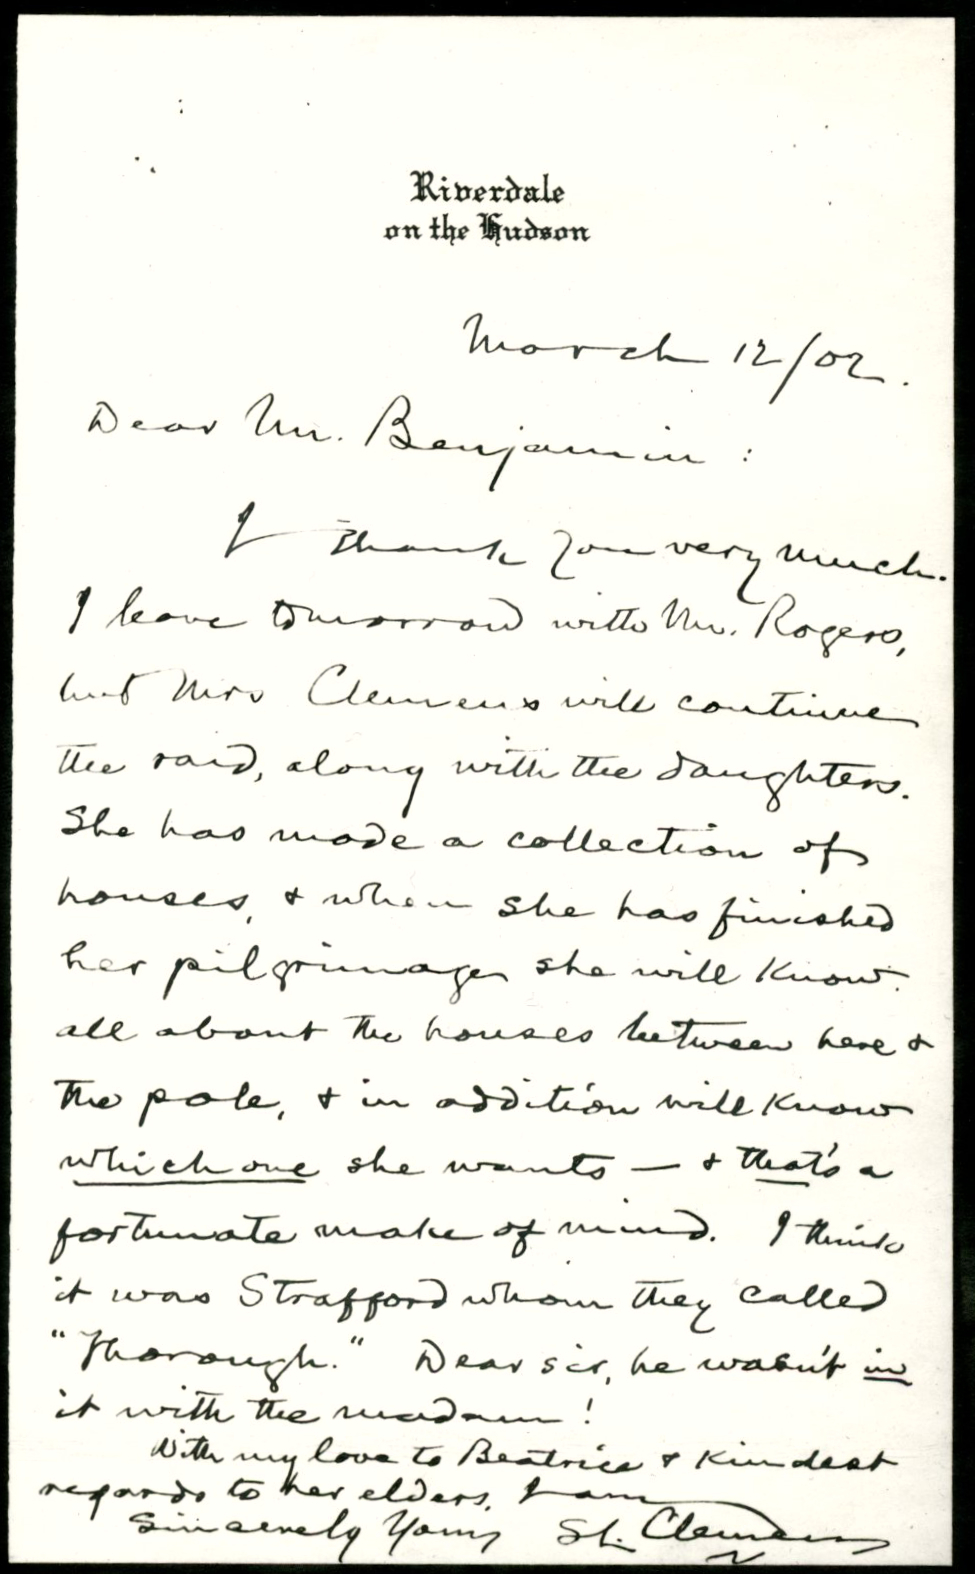 Riverdale
on the Hudson
March 12/02.
Dear Mr. Benjamin:
I thank you very much.
I leave tomorrow with Mr. Rogers,
but Mrs Clemens will continue
the raid, along with the daughters.
She has made a collection of
houses, & when she has finished
her pilgrimage she will know
all about the houses between here &
the pole, & in addition will know
which one she wants — & that's a
fortunate make of mind. I think
it was Strafford whom they called
"Thorough." Dear sir, he wasn't in
it with the madam!
With my love to Beatrice & kindest
regards to her elders, I am
Sincerely Yours SL. Clemens